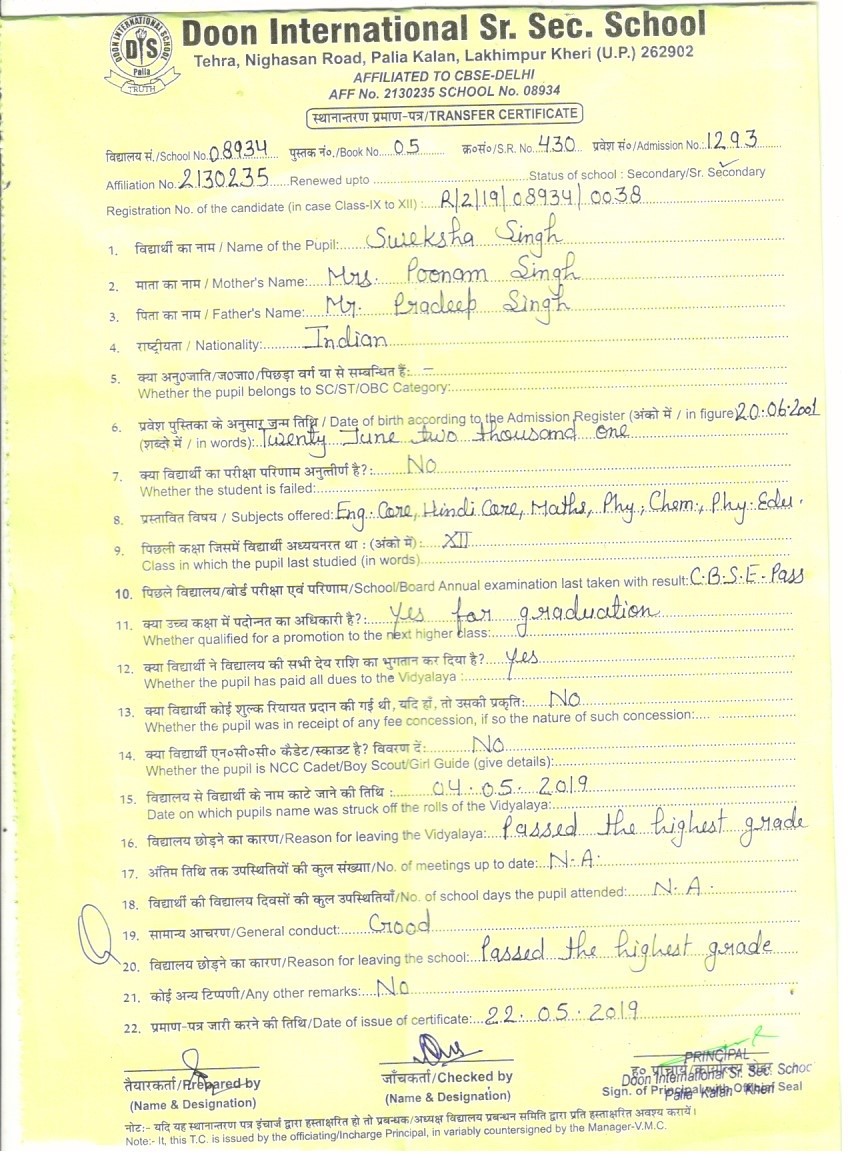 DOON INTERNATIONAL SCHOOL
DIS
Palia
TRUTH
Doon International Sr. Sec. School
Tehra, Nighasan Road, Palia Kalan, Lakhimpur Kheri (U.P.) 262902
AFFILIATED TO CBSE-DELHI
AFF No. 2130235 SCHOOL No. 08934
स्थानान्तरण प्रमाण-पत्र/TRANSFER CERTIFICATE
विद्यालय सं./School No. 08934 पुस्तक नं०./Book No. 05 क्र०सं०/S.R. No. 430 प्रवेश सं०/Admission No.: 1293
Affiliation No. 2130235 Renewed upto Status of school : Secondary/Sr. Secondary
Registration No. of the candidate (in case Class-IX to XII) : R/2/19/08934/0038
1. विद्यार्थी का नाम / Name of the Pupil: Sureksha Singh
2. माता का नाम / Mother's Name: Mrs. Poonam Singh
3. पिता का नाम / Father's Name: Mr. Pradeep Singh
4. राष्ट्रीयता / Nationality: Indian
5. क्या अनु०जाति/ज०जा०/पिछड़ा वर्ग या से सम्बन्धित हैः –
Whether the pupil belongs to SC/ST/OBC Category:
6. प्रवेश पुस्तिका के अनुसार जन्म तिथि / Date of birth according to the Admission Register (अंको में / in figure) 20.06.2001
(शब्दो में / in words): Twenty June two thousand one
7. क्या विद्यार्थी का परीक्षा परिणाम अनुत्तीर्ण है?: No
Whether the student is failed:
8. प्रस्तावित विषय / Subjects offered: Eng. Core, Hindi Core, Maths, Phy, Chem., Phy. Edu.
9. पिछली कक्षा जिसमें विद्यार्थी अध्ययनरत था : (अंको में) : XII
Class in which the pupil last studied (in words)
10. पिछले विद्यालय/बोर्ड परीक्षा एवं परिणाम/School/Board Annual examination last taken with result: C.B.S.E - Pass
11. क्या उच्च कक्षा में पदोन्नत का अधिकारी है?: Yes for graduation
Whether qualified for a promotion to the next higher class:
12. क्या विद्यार्थी ने विद्यालय की सभी देय राशि का भुगतान कर दिया है? Yes
Whether the pupil has paid all dues to the Vidyalaya :
13. क्या विद्यार्थी कोई शुल्क रियायत प्रदान की गई थी, यदि हाँ, तो उसकी प्रकृति: No
Whether the pupil was in receipt of any fee concession, if so the nature of such concession:
14. क्या विद्यार्थी एन०सी०सी० कैडेट/स्काउट है? विवरण दें: No
Whether the pupil is NCC Cadet/Boy Scout/Girl Guide (give details):
15. विद्यालय से विद्यार्थी के नाम काटे जाने की तिथि : 04.05.2019
Date on which pupils name was struck off the rolls of the Vidyalaya:
16. विद्यालय छोड़ने का कारण/Reason for leaving the Vidyalaya: Passed the highest grade
17. अंतिम तिथि तक उपस्थितियों की कुल संख्या/No. of meetings up to date: N.A.
18. विद्यार्थी की विद्यालय दिवसों की कुल उपस्थितियाँ/No. of school days the pupil attended: N.A.
19. सामान्य आचरण/General conduct: Good
20. विद्यालय छोड़ने का कारण/Reason for leaving the school: Passed the highest grade
21. कोई अन्य टिप्पणी/Any other remarks: No
22. प्रमाण-पत्र जारी करने की तिथि/Date of issue of certificate: 22.05.2019
तैयारकर्ता/Prepared by
(Name & Designation)
जाँचकर्ता/Checked by
(Name & Designation)
PRINCIPAL
Doon International Sr. Sec. School
Palia Kalan Kheri
Sign. of Principal with Official Seal
नोटः- यदि यह स्थानान्तरण पत्र इंचार्ज द्वारा हस्ताक्षरित हो तो प्रबन्धक/अध्यक्ष विद्यालय प्रबन्धन समिति द्वारा प्रति हस्ताक्षरित अवश्य करायें।
Note:- It, this T.C. is issued by the officiating/Incharge Principal, in variably countersigned by the Manager-V.M.C.